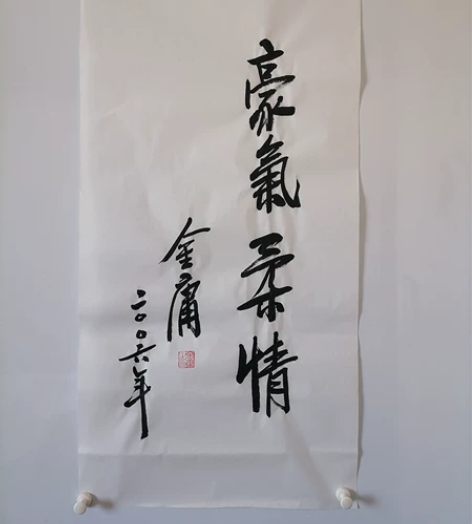 豪氣柔情
金庸
二〇〇六年